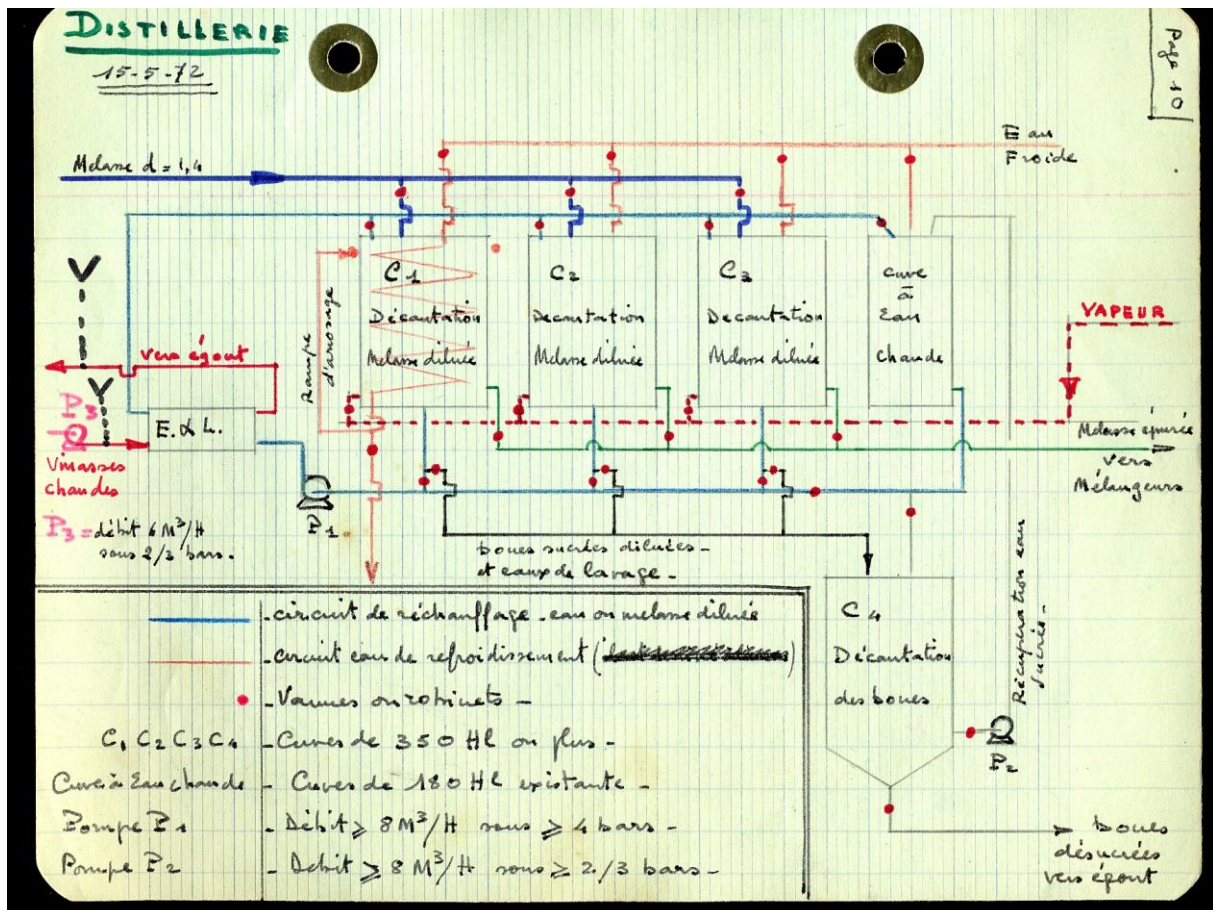 DISTILLERIE
15-5-72
Page 10
Eau
Froide
Melasse d = 1,4
C1
Décantation
Melasse diluée
C2
Decantation
Melasse diluée
C3
Decantation
Melasse diluée
cuve
à
Eau
chaude
Rampe
d'arrosage
VAPEUR
vers égout
E. & L.
P3
Vinasses
chaudes
P3 = débit 6 M³/H
sous 2/3 bars.
P1
Melasse épurée
vers
Mélangeurs
boues sucrées diluées -
et eaux de lavage -
C4
Décantation
des boues
Récupération eau
sucrée -
P2
boues
désucrées
vers égout
- circuit de réchauffage - eau ou melasse diluée
- circuit eau de refroidissement (
)
- Vannes ou robinets -
C1 C2 C3 C4 - Cuves de 350 Hl ou plus -
Cuve à Eau chaude - Cuves de 180 Hl existante -
Pompe P1 - Débit ⩾ 8 M³/H sous ⩾ 4 bars -
Pompe P2 - Débit ⩾ 8 M³/H sous ⩾ 2/3 bars -